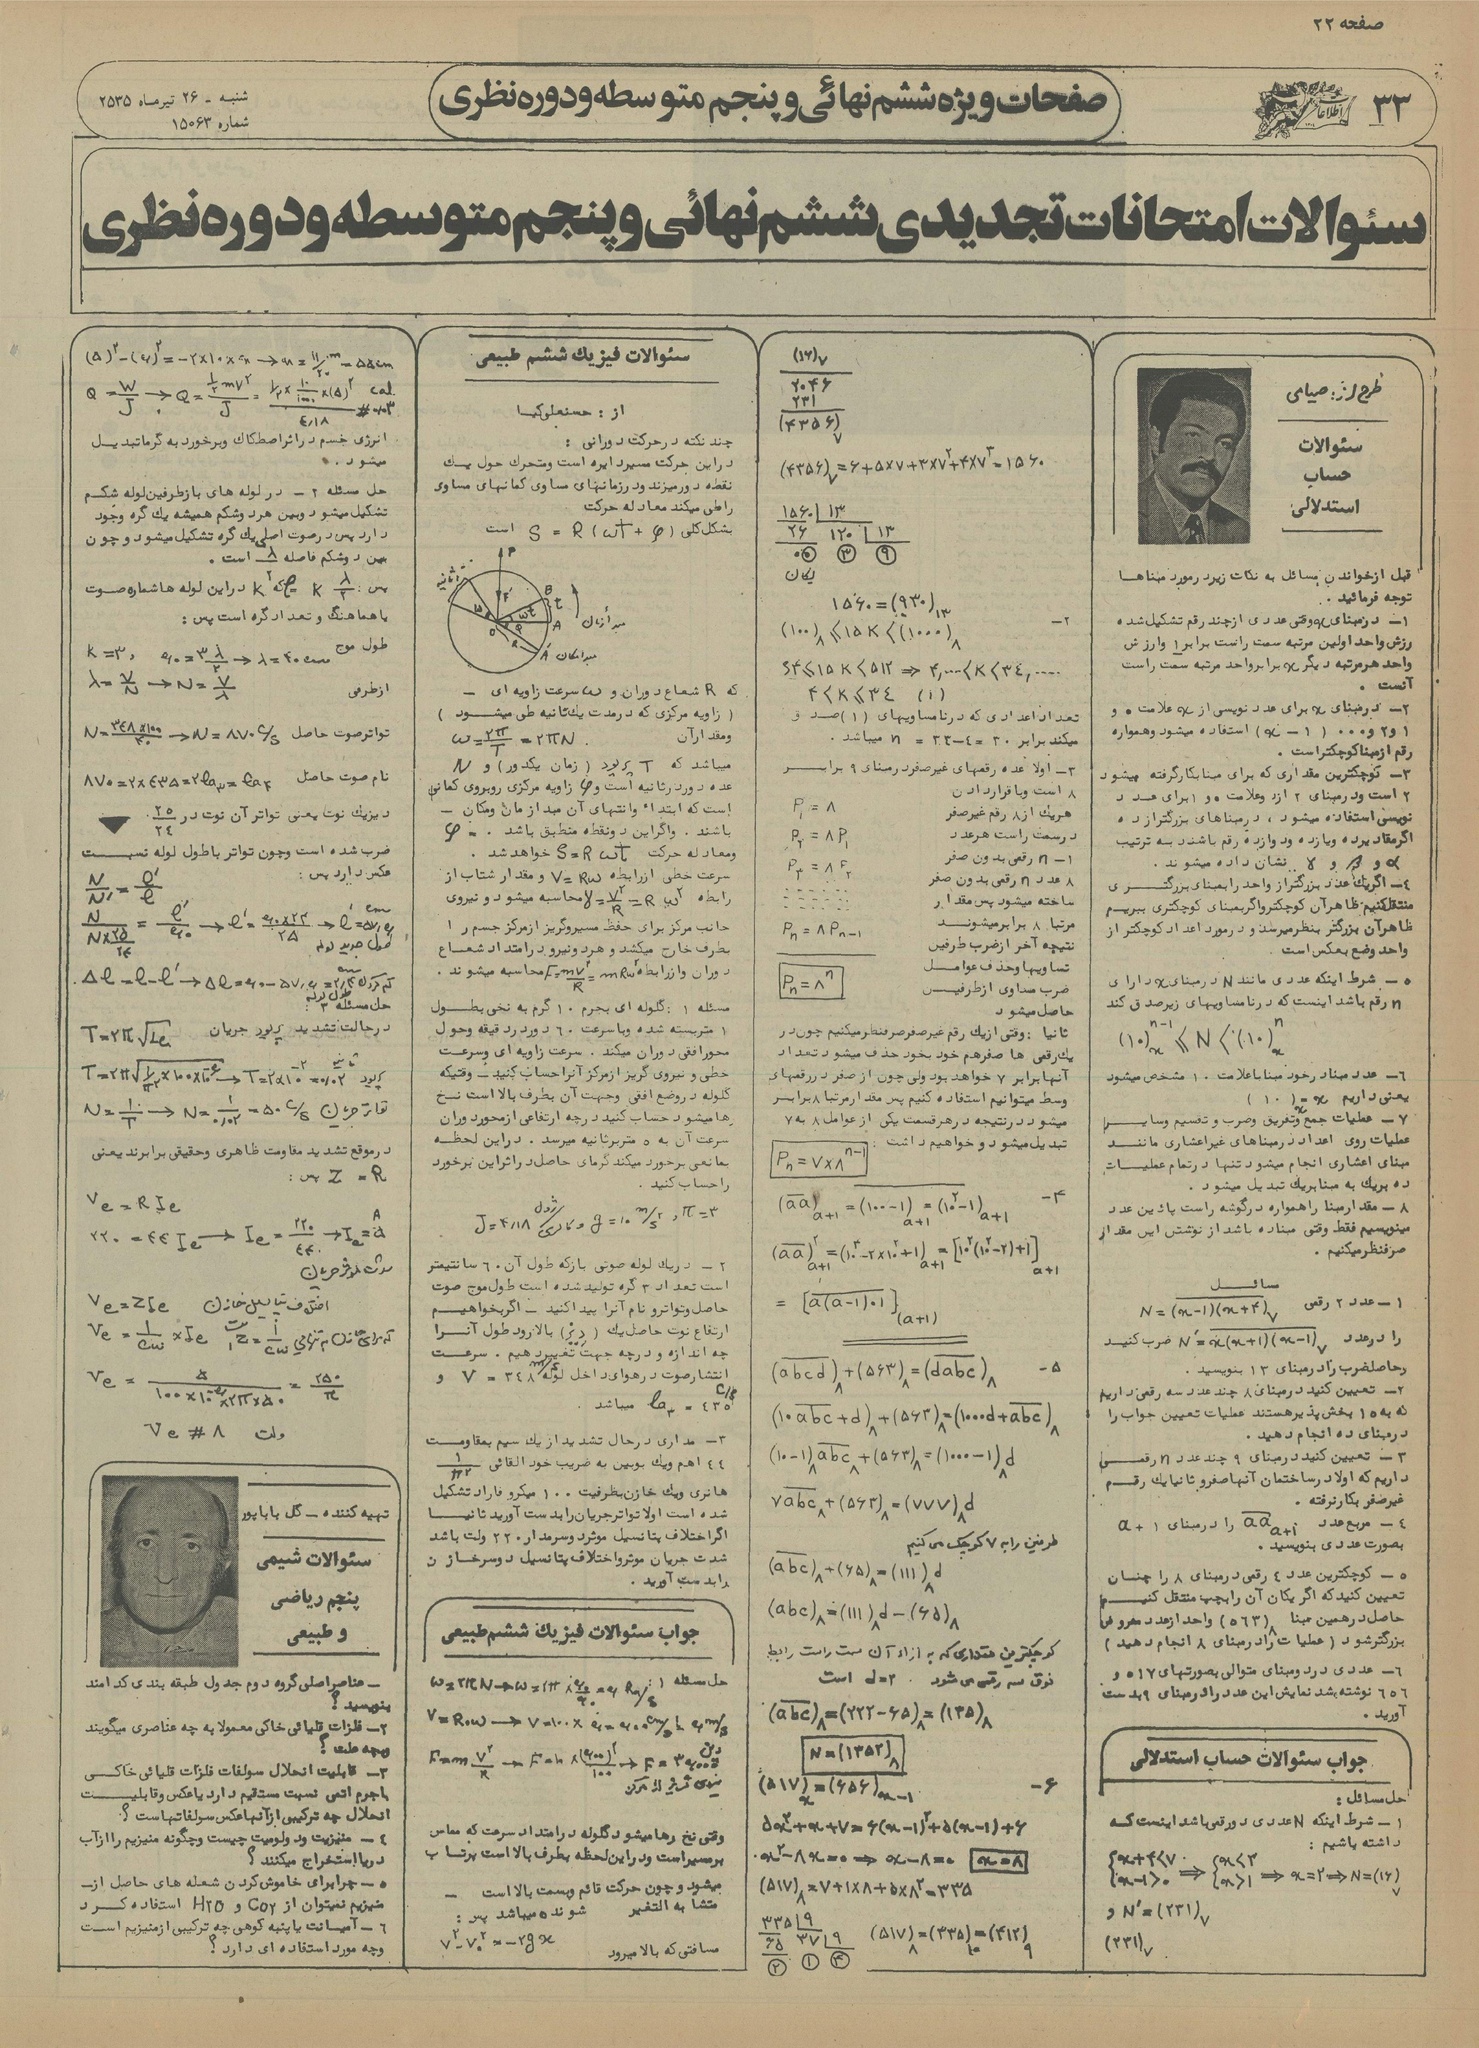 صفحه ۲۲
۳۳
اطلاعات
صفحات ویژه ششم نهائی و پنجم متوسطه و دوره نظری
شنبه - ۲۶ تیرماه ۲۵۳۵
شماره ۱۵۰۶۳
سئوالات امتحانات تجدیدی ششم نهائی و پنجم متوسطه و دوره نظری
طرح از: صیامی
سئوالات
حساب
استدلالی
قبل از خواندن مسائل به نکات زیر در مورد مبناها
توجه فرمائید .
۱- در مبنای x وقتی عددی از چند رقم تشکیل شده
ارزش واحد اولین مرتبه سمت راست برابر ۱ وارزش
واحد هر مرتبه دیگر x برابر واحد مرتبه سمت راست
آنست .
۲- در مبنای x برای عدد نویسی از x علامت ۰ و
۱ و ۲ و ۰۰۰ (x - ۱) استفاده میشود وهمواره
رقم از مبنا کوچکتر است .
۳- کوچکترین مقداری که برای مبنا بکار گرفته میشود
۲ است و در مبنای ۲ از دو علامت ۰ و ۱ برای عدد
نویسی استفاده میشود ، در مبناهای بزرگتر از ده
اگر مقادیر ده و یازده و دوازده رقم باشند به ترتیب
α و β و γ نشان داده میشوند .
۴- اگر یک عدد بزرگتر از واحد را بمبنای بزرگتری
منتقل کنیم ظاهر آن کوچکتر و اگر بمبنای کوچکتری ببریم
ظاهر آن بزرگتر بنظر میرسد و در مورد اعداد کوچکتر از
واحد وضع بعکس است
۵- شرط اینکه عددی مانند N در مبنای x دارای
n رقم باشد اینست که در نامساویهای زیر صدق کند
(۱۰)ₓⁿ⁻¹ ⩽ N < (۱۰)ₓⁿ
۶- عدد مبنا در خود مبنا با علامت ۱۰ مشخص میشود
یعنی داریم x = (۱۰)ₓ
۷- عملیات جمع و تفریق و ضرب و تقسیم و سایر
عملیات روی اعداد در مبناهای غیر اعشاری مانند
مبنای اعشاری انجام میشود تنها در تمام عملیات
ده بر یک به مبنا بر یک تبدیل میشود .
۸- مقدار مبنا را همواره در گوشه راست پائین عدد
مینویسیم فقط وقتی مبنا ده باشد از نوشتن این مقدار
صرفنظر میکنیم .
مسائل
۱- عدد ۲ رقمی N = (x-۱)(x+۴)₇
را در عدد N' = x(x+۱)(x-۱)₇ ضرب کنید
و حاصلضرب را در مبنای ۱۳ بنویسید .
۲- تعیین کنید در مبنای ۸ چند عدد سه رقمی داریم
که به ۱۵ بخش پذیر هستند عملیات تعیین جواب را
در مبنای ده انجام دهید .
۳- تعیین کنید در مبنای ۹ چند عدد n رقمی
داریم که اولا در ساختمان آنها صفر و ثانیا یک رقم
غیر صفر بکار نرفته .
۴- مربع عدد aa a+۱ را در مبنای a + ۱
بصورت عددی بنویسید .
۵- کوچکترین عدد ۴ رقمی در مبنای ۸ را چنان
تعیین کنید که اگر یکان آن را بچپ منتقل کنیم
حاصل در همین مبنا (۵۶۳)₈ واحد از عدد مفروض
بزرگتر شود (عملیات را در مبنای ۸ انجام دهید)
۶- عددی در دو مبنای متوالی بصورتهای ۵۱۷ و
۶۵۶ نوشته شد نمایش این عدد را در مبنای ۹ بدست
آورید .
جواب سئوالات حساب استدلالی
حل مسائل :
۱- شرط اینکه N عددی دو رقمی باشد اینست که
داشته باشیم :
{x+۴<۷ x-۱>۰ ⇒ {x<۳ x>۱ ⇒ x=۲ ⇒ N=(۱۶)₇
و N' = (۲۳۱)₇
(۲۳۱)₇
(۱۶)₇
۲۰۴۶
۲۳۱
(۴۳۵۶)₇
(۴۳۵۶)₇ = ۶+۵×۷+۳×۷²+۴×۷³ = ۱۵۶۰
۱۵۶۰ | ۱۳
۲۶ ۱۲۰ | ۱۳
۰۰ ③ ⑨
یکان
۱۵۶۰ = (۹۳۰)₁₃
۲- (۱۰۰)₈ ⩽ ۱۵K < (۱۰۰۰)₈
۶۴ ⩽ ۱۵K < ۵۱۲ ⇒ ۴,... < K < ۳۴,....
۴ < K ⩽ ۳۴ (۱)
تعداد اعدادی که در نامساویهای (۱) صدق
میکند برابر ۳۰ = ۴-۳۴ = n میباشد .
۳- اولا عده رقمهای غیر صفر در مبنای ۹ برابر
۸ است و با قرار دادن
هر یک از ۸ رقم غیر صفر P₁ = ۸
در سمت راست هر عدد P₂ = ۸P₁
n-۱ رقمی بدون صفر P₃ = ۸P₂
۸ عدد n رقمی بدون صفر
ساخته میشود پس مقدار
مرتبا ۸ برابر میشوند Pₙ = ۸Pₙ₋₁
نتیجه آخر از ضرب طرفین
تساویها و حذف عوامل
ضرب مساوی از طرفین Pₙ = ۸ⁿ
حاصل میشود
ثانیا : وقتی از یک رقم غیر صفر صرفنظر میکنیم چون در
یک رقمی ها صفر هم خود بخود حذف میشود تعداد
آنها برابر ۷ خواهد بود ولی چون از صفر در رقمهای
وسط میتوانیم استفاده کنیم پس مقدار مرتبا ۸ برابر
میشود در نتیجه در هر قسمت یکی از عوامل ۸ به ۷
تبدیل میشود و خواهیم داشت :
Pₙ = ۷×۸ⁿ⁻¹
۴- (aa)a+۱ = (۱۰۰-۱)a+۱ = (۱۰²-۱)a+۱
(aa)²a+۱ = (۱۰⁴-۲×۱۰²+۱)a+۱ = [۱۰²(۱۰²-۲)+۱]a+۱
= [a(a-۱)۰۱](a+۱)
۵- (abcd)₈ + (۵۶۳)₈ = (dabc)₈
(۱۰abc+d)₈ + (۵۶۳)₈ = (۱۰۰۰d+abc)₈
(۱۰-۱)₈abc₈ + (۵۶۳)₈ = (۱۰۰۰-۱)₈d
۷abc₈ + (۵۶۳)₈ = (۷۷۷)₈d
طرفین را به ۷ کوچک می کنیم
(abc)₈ + (۶۵)₈ = (۱۱۱)₈d
(abc)₈ = (۱۱۱)₈d - (۶۵)₈
کوچکترین مقداری که به ازاء آن سمت راست رابطه
فوق سه رقمی می شود d=۲ است
(abc)₈ = (۲۲۲-۶۵)₈ = (۱۳۵)₈
N = (۱۳۵۲)₈
۶- (۵۱۷)ₓ = (۶۵۶)ₓ₋₁
۵x²+x+۷ = ۶(x-۱)²+۵(x-۱)+۶
x²-۸x=۰ ⇒ x-۸=۰ x=۸
(۵۱۷)₈ = ۷+۱×۸+۵×۸² = ۳۳۵
۳۳۵ | ۹
۶۵ ۳۷ | ۹
② ① ④
(۵۱۷)₈ = (۳۳۵)₁₀ = (۴۱۲)₉
سئوالات فیزیک ششم طبیعی
از : حسنعلی کیا
چند نکته در حرکت دورانی :
در این حرکت مسیر دایره است و متحرک حول یک
نقطه دور میزند و در زمانهای مساوی کمانهای مساوی
را طی میکند معادله حرکت
بشکل کلی S = R(ωt + φ) است
P
B
A
A'
O
مبدأ زمان
مبدأ مکان
که R شعاع دوران و ω سرعت زاویه ای -
(زاویه مرکزی که در مدت یک ثانیه طی میشود)
ومقدار آن ω = ۲π/T = ۲πN .
میباشد که T پریود (زمان یکدور) و N
عده دور در ثانیه است و φ زاویه مرکزی روبروی کمانی
است که ابتداء و انتهای آن مبداء زمان و مکان -
باشند . و اگر این دو نقطه منطبق باشد φ = ۰
ومعادله حرکت S = Rωt خواهد شد .
سرعت خطی از رابطه V = Rω و مقدار شتاب از
رابطه γ = V²/R = Rω² محاسبه میشود و نیروی
جانب مرکز برای حفظ مسیر و گریز از مرکز جسم را
بطرف خارج میکشد و هر دو نیرو در امتداد شعاع
دوران و از رابطه F = mV²/R = mRω² محاسبه میشوند .
مسئله ۱ : گلوله ای بجرم ۱۰ گرم به نخی بطول
۱ متر بسته شده و با سرعت ۶۰ دور در دقیقه وحول
محور افقی دوران میکند . سرعت زاویه ای و سرعت
خطی و نیروی گریز از مرکز آنرا حساب کنید - وقتیکه
گلوله در وضع افقی و جهت آن بطرف بالا است نخ
رها میشود حساب کنید در چه ارتفاعی از محور دوران
سرعت آن به ۵ متر بر ثانیه میرسد . در این لحظه
بمانعی برخورد میکند گرمای حاصل در اثر این برخورد
را حساب کنید .
π=۳ , g=۱۰ m/s² و J=۴٫۱۸ ژول/کالری
۲- در یک لوله صوتی باز که طول آن ۶۰ سانتیمتر
است تعداد ۳ گره تولید شده است طول موج صوت
حاصل و تواتر و نام آنرا پیدا کنید - اگر بخواهیم
ارتفاع نوت حاصل یک (دیز) بالا رود طول آنرا
چه اندازه و در چه جهت تغییر دهیم . سرعت
انتشار صوت در هوای داخل لوله V = ۳۴۸ m/s و
la₃ = ۴۳۵ C/s میباشد .
۳- مداری در حال تشدید از یک سیم بمقاومت
۴۴ اهم و یک بوبین به ضریب خود القائی ۱/π²
هانری و یک خازن بظرفیت ۱۰۰ میکرو فاراد تشکیل
شده است اولا تواتر جریان را بدست آورید ثانیا
اگر اختلاف پتانسیل موثر دو سر مدار ۲۲۰ ولت باشد
شدت جریان موثر و اختلاف پتانسیل دو سر خازن
را بدست آورید .
جواب سئوالات فیزیک ششم طبیعی
حل مسئله ۱ :
وقتی نخ رها میشود گلوله در امتداد سرعت که مماس
بر مسیر است و در این لحظه بطرف بالا است پرتاب
میشود و چون حرکت قائم و بسمت بالا است -
متشابه التغییر شونده میباشد پس :
V²-V₀² = -۲gx
مسافتی که بالا میرود
(۵)²-(۶)² = -۲×۱۰×x → x = ۱۱/۲۰ m = ۵۵cm
انرژی جسم در اثر اصطکاک و برخورد به گرما تبدیل
میشود .
حل مسئله ۲ - در لوله های باز طرفین لوله شکم
تشکیل میشود و بین هر دو شکم همیشه یک گره وجود
دارد پس در صوت اصلی یک گره تشکیل میشود و چون
بین دو شکم فاصله λ/۲ است .
پس : K λ/۲ = l که K در این لوله ها شماره صوت
یا هماهنگ و تعداد گره است پس :
طول موج K=۳, ۶۰=۳λ/۲ → λ=۴۰ cm
از طرفی λ=V/N → N=V/λ
تواتر صوت حاصل N=۳۴۸×۱۰۰/۴۰ → N=۸۷۰ C/S
نام صوت حاصل ۸۷۰=۲×۴۳۵=۲la₃=la₄
دیز یک نوت یعنی تواتر آن نوت در ۲۵/۲۴
ضرب شده است و چون تواتر با طول لوله نسبت
عکس دارد پس : N/N' = l'/l
N/(N×۲۵/۲۴) = l'/۶۰ → l' = ۶۰×۲۴/۲۵ → l' = ۵۷٫۶ cm
طول جدید لوله
Δl = l-l' → Δl = ۶۰-۵۷٫۶ = ۲٫۴ cm
حل مسئله ۳ :
در حالت تشدید پریود جریان
تواتر جریان N=۱/T → N=۱/۰٫۰۲=۵۰ C/S
در موقع تشدید مقاومت ظاهری و حقیقی برابرند یعنی
Z = R پس :
Ve = RIe
۲۲۰ = ۴۴Ie → Ie = ۲۲۰/۴۴ → Ie = ۵ A
شدت موثر جریان
Ve = ZIe اختلاف پتانسیل خازن
Ve = ۵/(۱۰۰×۱۰⁻⁶×۲π×۵۰) = ۲۵۰/π
تهیه کننده - گل باباپور
سئوالات شیمی
پنجم ریاضی
و طبیعی
۱- عناصر اصلی گروه دوم جدول طبقه بندی کدامند
بنویسید ؟
۲- فلزات قلیائی خاکی معمولا به چه عناصری میگویند
و بچه علت ؟
۳- قابلیت انحلال سولفات فلزات قلیائی خاکی
با جرم اتمی نسبت مستقیم دارد یا عکس و قابلیت
انحلال چه ترکیبی از آنها عکس سولفاتهاست ؟
۴- منیزیت و دولومیت چیست و چگونه منیزیم را از آب
دریا استخراج میکنند ؟
۵- چرا برای خاموش کردن شعله های حاصل از
منیزیم نمیتوان از CO۲ و H۲O استفاده کرد
۶- آمیانت یا پنبه کوهی چه ترکیبی از منیزیم است
وچه مورد استفاده ای دارد ؟